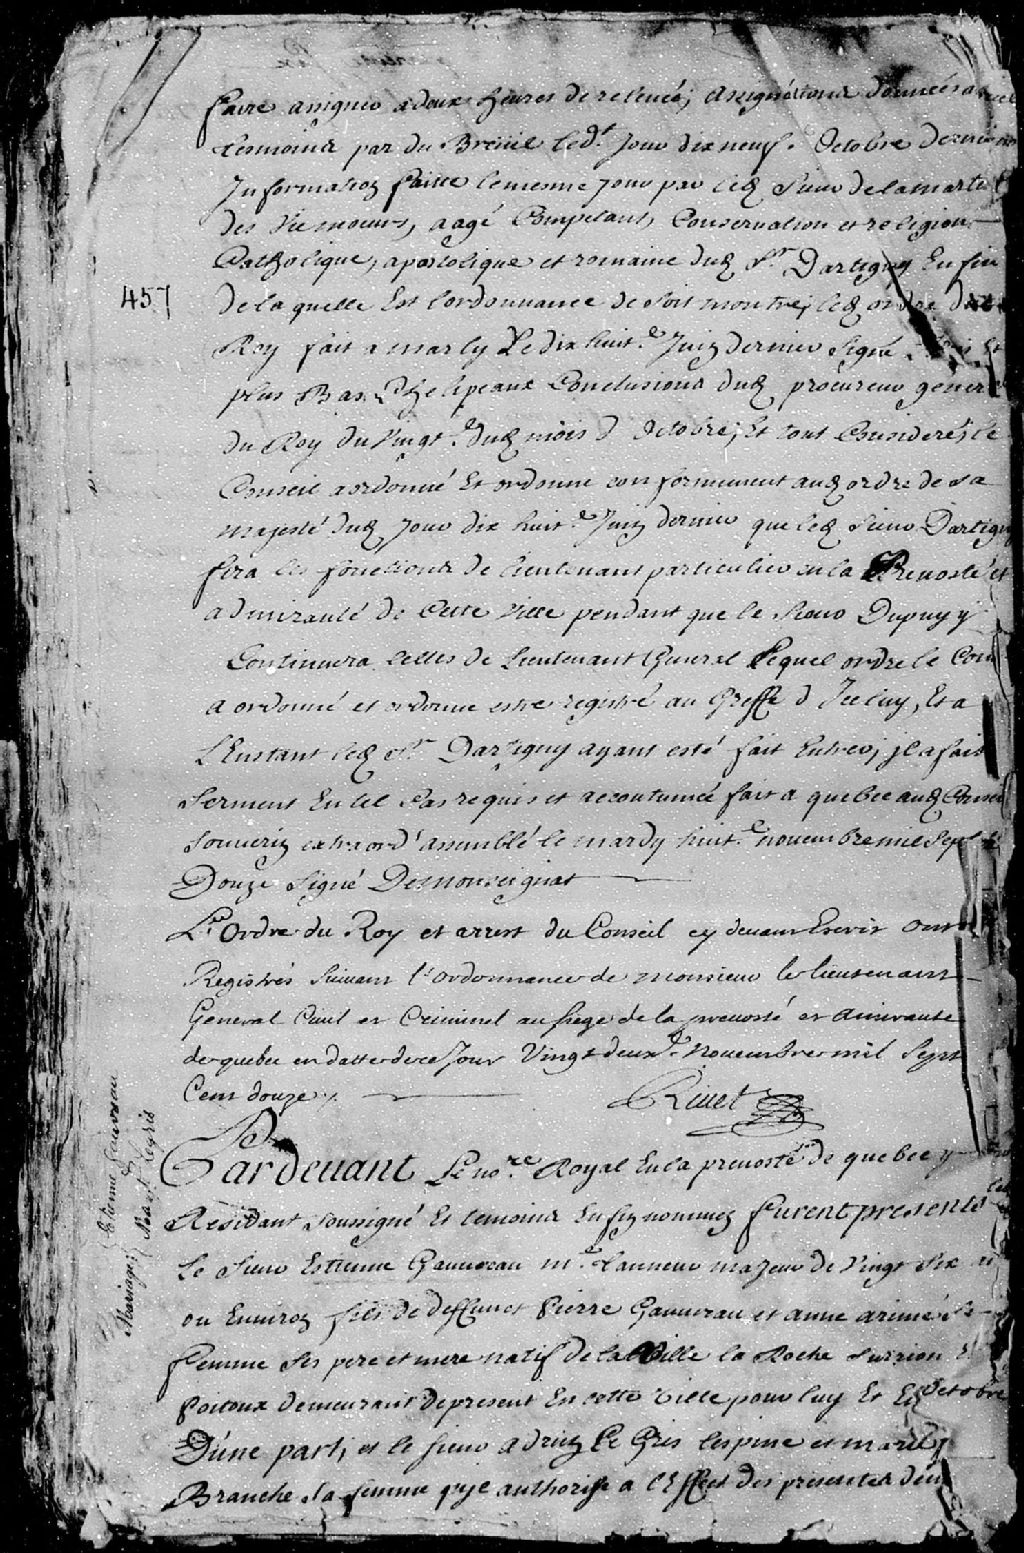 faire assigner a deux heures de relevée; assignations données aux
temoins par du Breüil led.t jour dix neuf.e Octobre dernier
Information faitte le mesme jour par led Sieur de la martiniere
des vie moeurs, aagé Competant, Conservation et religion
Catholique, apostolique et romaine dud Sr. Dartigny En fin
457
de laquelle Est l'ordonnance de soit montré, led ordre du
Roy fait a marly Le dix huit.e Juin dernier Signé Louis Et
plus Bas Phelipeaux Conclusions dud procureur general
du Roy du Vingt.e dud mois d'Octobre, Et tout Considerés, le
Conseil a ordonné Et ordonne conformement aud ordre de sa
majesté dud jour dix huit.e Juin dernier que led Sieur Dartigny
fera les fonctions de lieutenant particulier en la Prevosté et
admirauté de Cette ville pendant que le Sieur Dupuy y
Continuera Celles de Lieutenant General Lequel ordre le Con
a ordonné et ordonne estre registré au Greffe d'Iceluy, Et a
L'Instant led Sr. Dartigny ayant esté fait Entrer, il a fait
Serment En tel Cas requis et accoutumée fait a quebec aud Conseil
Souverin extraord.e assemblé le mardy huit.e novembre mil Sept
Douze Signé Demonseignat
L'Ordre du Roy et arrest du Conseil cy devant Ecrits ont
Registrés suivant l'ordonnance de monsieur le lieutenant
General Civil et Criminel au siege de la prevosté et amirauté
de quebec en datte de ce jour Vingt deux.e Novembre mil Sept
Cent douze
Rivet
Mariage: Etienne Gauvreau & Marie Legris
Pardevant Le no.re Royal En la prevosté de quebec y
Résidant soussigné Et temoins En fin nommez furent presents
le Sieur Estienne Gauvreau m.e Tanneur majeur de Vingt Six ans
ou Environ fils de deffunct Pierre Gauvreau et anne
femme ses pere et mere natif de la Ville la Roche surrion En
Poitoux demeurant depresent En cette ville pour luy Et En
D'une part, et le Sieur adrien Le Gris lespine et marie
Branche sa femme qu'il authorise a l'Effect des presentes d'eux